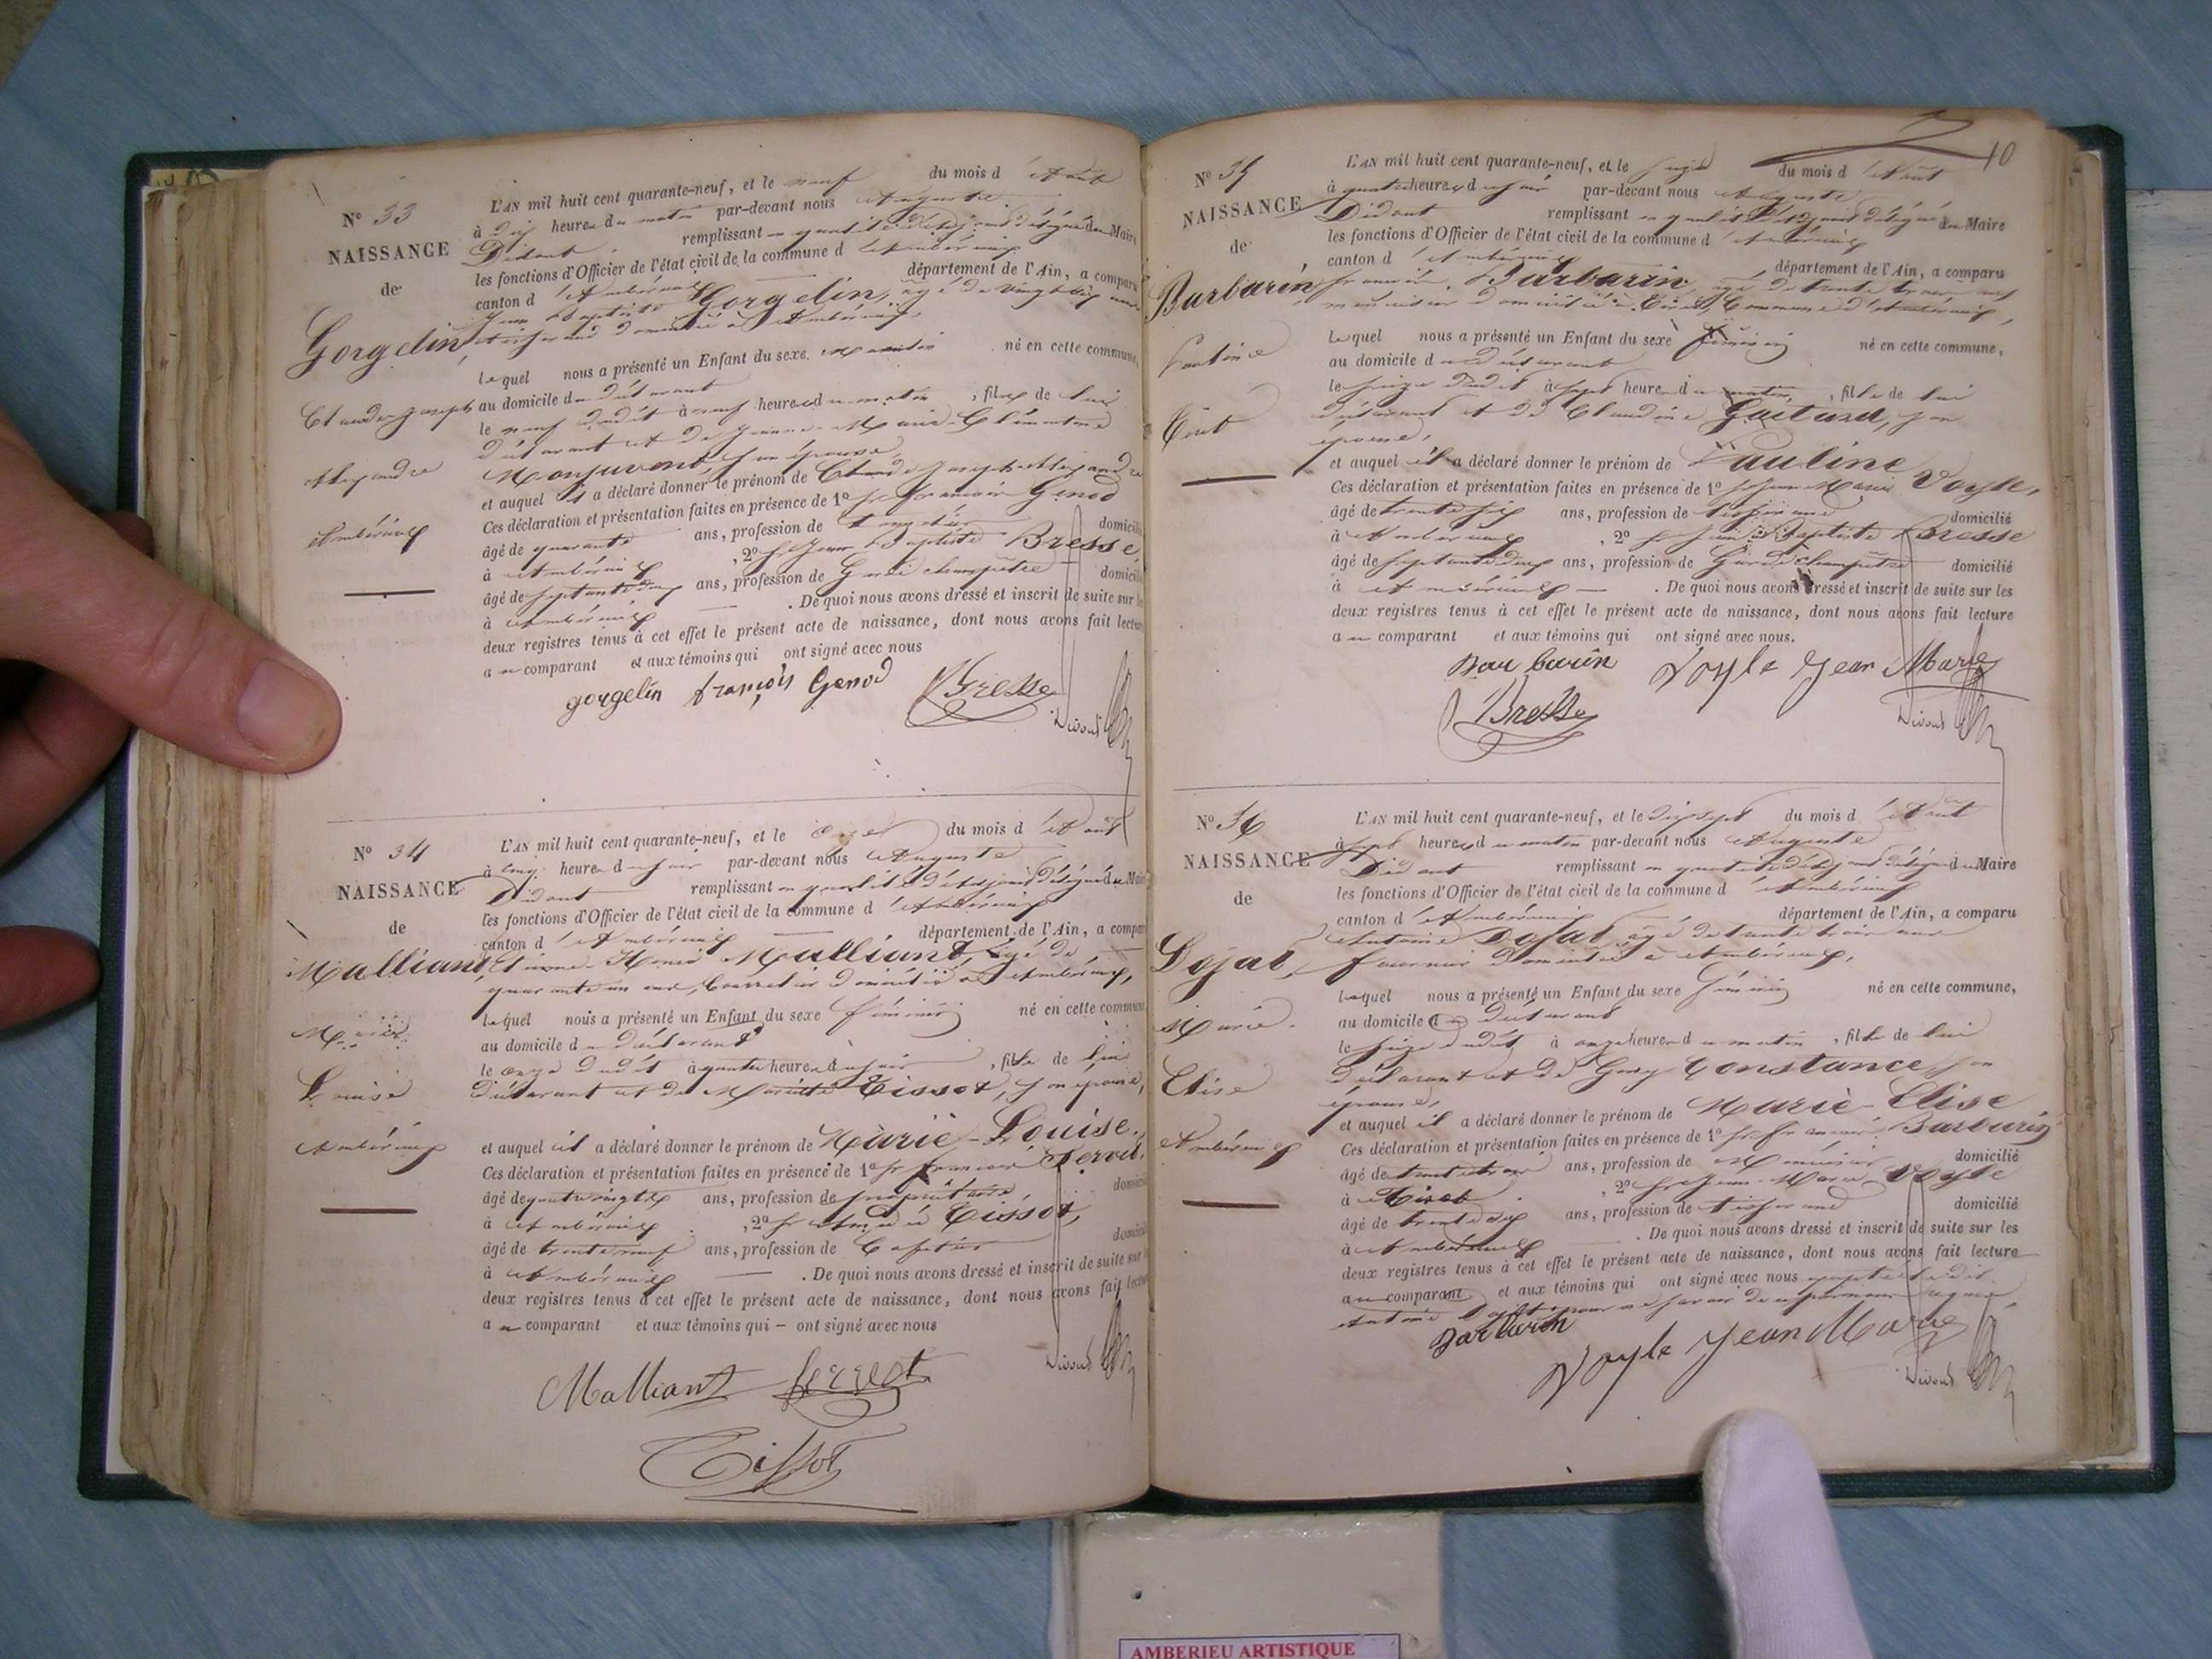 N° 33
NAISSANCE
de
Gorgelin
Claude-Joseph
Alexandre
Ambérieux
L'AN mil huit cent quarante-neuf, et le neuf du mois d'Août
à dix heures du matin par-devant nous Auguste
Didout remplissant en qualité d'adjoint délégué du Maire
les fonctions d'Officier de l'état civil de la commune d'Ambérieux
canton d'Ambérieux département de l'Ain, a comparu
Jean Baptiste Gorgelin, âgé de vingt six ans
tisserand domicilié à Ambérieux,
lequel nous a présenté un Enfant du sexe Masculin né en cette commune,
au domicile du déclarant
le neuf dudit à neuf heures du matin, fils de lui
déclarant et de Jeanne-Marie-Clémentine
Monjuvent, son épouse,
et auquel il a déclaré donner le prénom de Claude Joseph-Alexandre
Ces déclaration et présentation faites en présence de 1° sr François Genod
âgé de quarante ans, profession de domicilié
à Ambérieux, 2° sr Jean Baptiste Bresse
âgé de septante deux ans, profession de Garde champêtre domicilié
à Ambérieux. De quoi nous avons dressé et inscrit de suite sur les
deux registres tenus à cet effet le présent acte de naissance, dont nous avons fait lecture
au comparant et aux témoins qui ont signé avec nous
gorgelin françois Genod Bresse
Didout
N° 34
NAISSANCE
de
Malliant
Marie
Louise
Ambérieux
L'AN mil huit cent quarante-neuf, et le onze du mois d'Août
à cinq heures du soir par-devant nous Auguste
Didout remplissant en qualité d'adjoint délégué du Maire
les fonctions d'Officier de l'état civil de la commune d'Ambérieux
canton d'Ambérieux département de l'Ain, a comparu
Malliant, âgé de
quarante un ans, domicilié à Ambérieux,
lequel nous a présenté un Enfant du sexe féminin né en cette commune
au domicile du déclarant
le onze dudit à quatre heures du soir, fille de lui
déclarant et de Mariette Tissot, son épouse,
et auquel il a déclaré donner le prénom de Marie-Louise.
Ces déclaration et présentation faites en présence de 1° sr François
âgé de ans, profession de propriétaire domicilié
à Ambérieux, 2° sr Tissot,
âgé de trente neuf ans, profession de Cafetier domicilié
à Ambérieux. De quoi nous avons dressé et inscrit de suite sur les
deux registres tenus à cet effet le présent acte de naissance, dont nous avons fait lecture
au comparant et aux témoins qui – ont signé avec nous
Malliant
Didout
Tissot
10
N° 35
NAISSANCE
de
Barbarin
Pauline
Tiret
L'AN mil huit cent quarante-neuf, et le seize du mois d'Août
à quatre heures du soir par-devant nous Auguste
Didout remplissant en qualité d'adjoint délégué du Maire
les fonctions d'Officier de l'état civil de la commune d'Ambérieux
canton d'Ambérieux département de l'Ain, a comparu
François Barbarin, âgé de trente trois ans
menuisier domicilié à Tiret, Commune d'Ambérieux,
lequel nous a présenté un Enfant du sexe féminin né en cette commune,
au domicile du déclarant
le seize dudit à sept heures du matin, fille de lui
déclarant et de Claudine son
épouse,
et auquel il a déclaré donner le prénom de Pauline
Ces déclaration et présentation faites en présence de 1° sr Jean Marie Voyle,
âgé de trente six ans, profession de tisserand domicilié
à Ambérieux, 2° sr Jean Baptiste Bresse
âgé de septante deux ans, profession de Garde champêtre domicilié
à Ambérieux. De quoi nous avons dressé et inscrit de suite sur les
deux registres tenus à cet effet le présent acte de naissance, dont nous avons fait lecture
au comparant et aux témoins qui ont signé avec nous.
Barbarin Voyle Jean Marie
Bresse Didout
N° 36
NAISSANCE
de
Dojat
Marie
Elise
Ambérieux
L'AN mil huit cent quarante-neuf, et le dix sept du mois d'Août
à sept heures du matin par-devant nous Auguste
Didout remplissant en qualité d'adjoint délégué du Maire
les fonctions d'Officier de l'état civil de la commune d'Ambérieux
canton d'Ambérieux département de l'Ain, a comparu
Antoine Dojat, âgé de trente trois ans
fournier domicilié à Ambérieux,
lequel nous a présenté un Enfant du sexe féminin né en cette commune,
au domicile du déclarant
le seize dudit à onze heures du matin, fille de lui
déclarant et de Constance, son
épouse,
et auquel il a déclaré donner le prénom de Marie-Elise
Ces déclaration et présentation faites en présence de 1° sr François Barbarin
âgé de trente trois ans, profession de Menuisier domicilié
à Tiret, 2° sr Jean-Marie Voyle
âgé de trente six ans, profession de tisserand domicilié
à Ambérieux. De quoi nous avons dressé et inscrit de suite sur les
deux registres tenus à cet effet le présent acte de naissance, dont nous avons fait lecture
au comparant et aux témoins qui ont signé avec nous excepté ledit
Antoine Dojat pour ne savoir de ce requis,
Barbarin
Voyle Jean Marie
Didout
AMBERIEU ARTISTIQUE